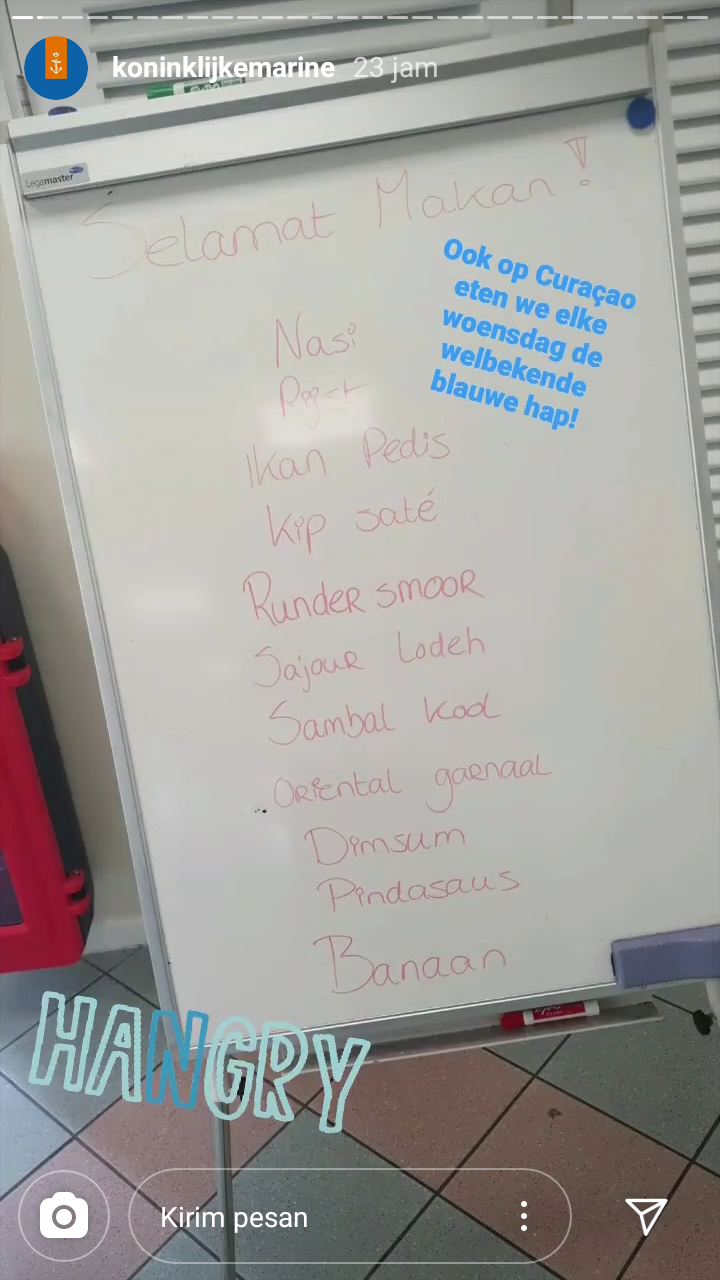 koninklijkemarine 23 jam
Legamaster
Selamat Makan!
Ook op Curaçao
eten we elke
woensdag de
welbekende
blauwe hap!
Nasi
Rijst
Ikan Pedis
Kip saté
Runder smoor
Sajour Lodeh
Sambal kool
Oriental garnaal
Dimsum
Pindasaus
Banaan
HANGRY
Kirim pesan